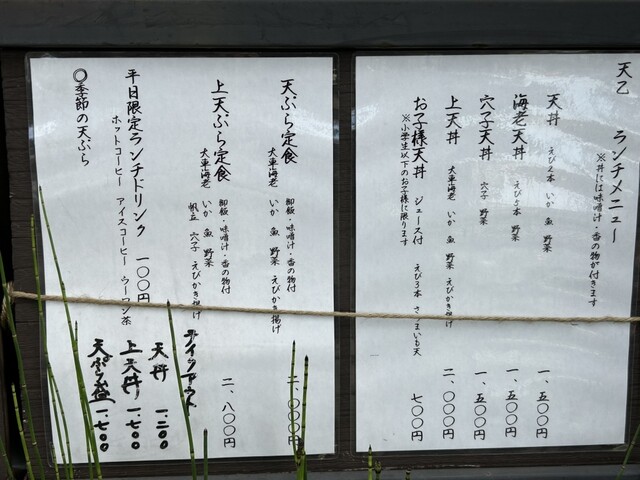 天乙 ランチメニュー
※丼には味噌汁・香の物が付きます
天丼 えび2本 いか 魚 野菜 一、五〇〇円
海老天丼 えび5本 野菜 一、五〇〇円
穴子天丼 穴子 野菜 一、五〇〇円
上天丼 大車海老 いか 魚 野菜 えびかき揚げ 二、〇〇〇円
お子様天丼 ジュース付 えび3本 さつまいも天 七〇〇円
※小学生以下のお子様に限ります
天ぷら定食 御飯・味噌汁・香の物付 二、〇〇〇円
大車海老 いか 魚 野菜 えびかき揚げ
上天ぷら定食 御飯・味噌汁・香の物付 二、八〇〇円
大車海老 いか 魚 野菜 えびかき揚げ
帆立 穴子
平日限定ランチドリンク 一〇〇円
ホットコーヒー アイスコーヒー ウーロン茶
◎季節の天ぷら
テイクアウト
天丼 1.200
上天丼 1.700
天ぷら盛 1.700